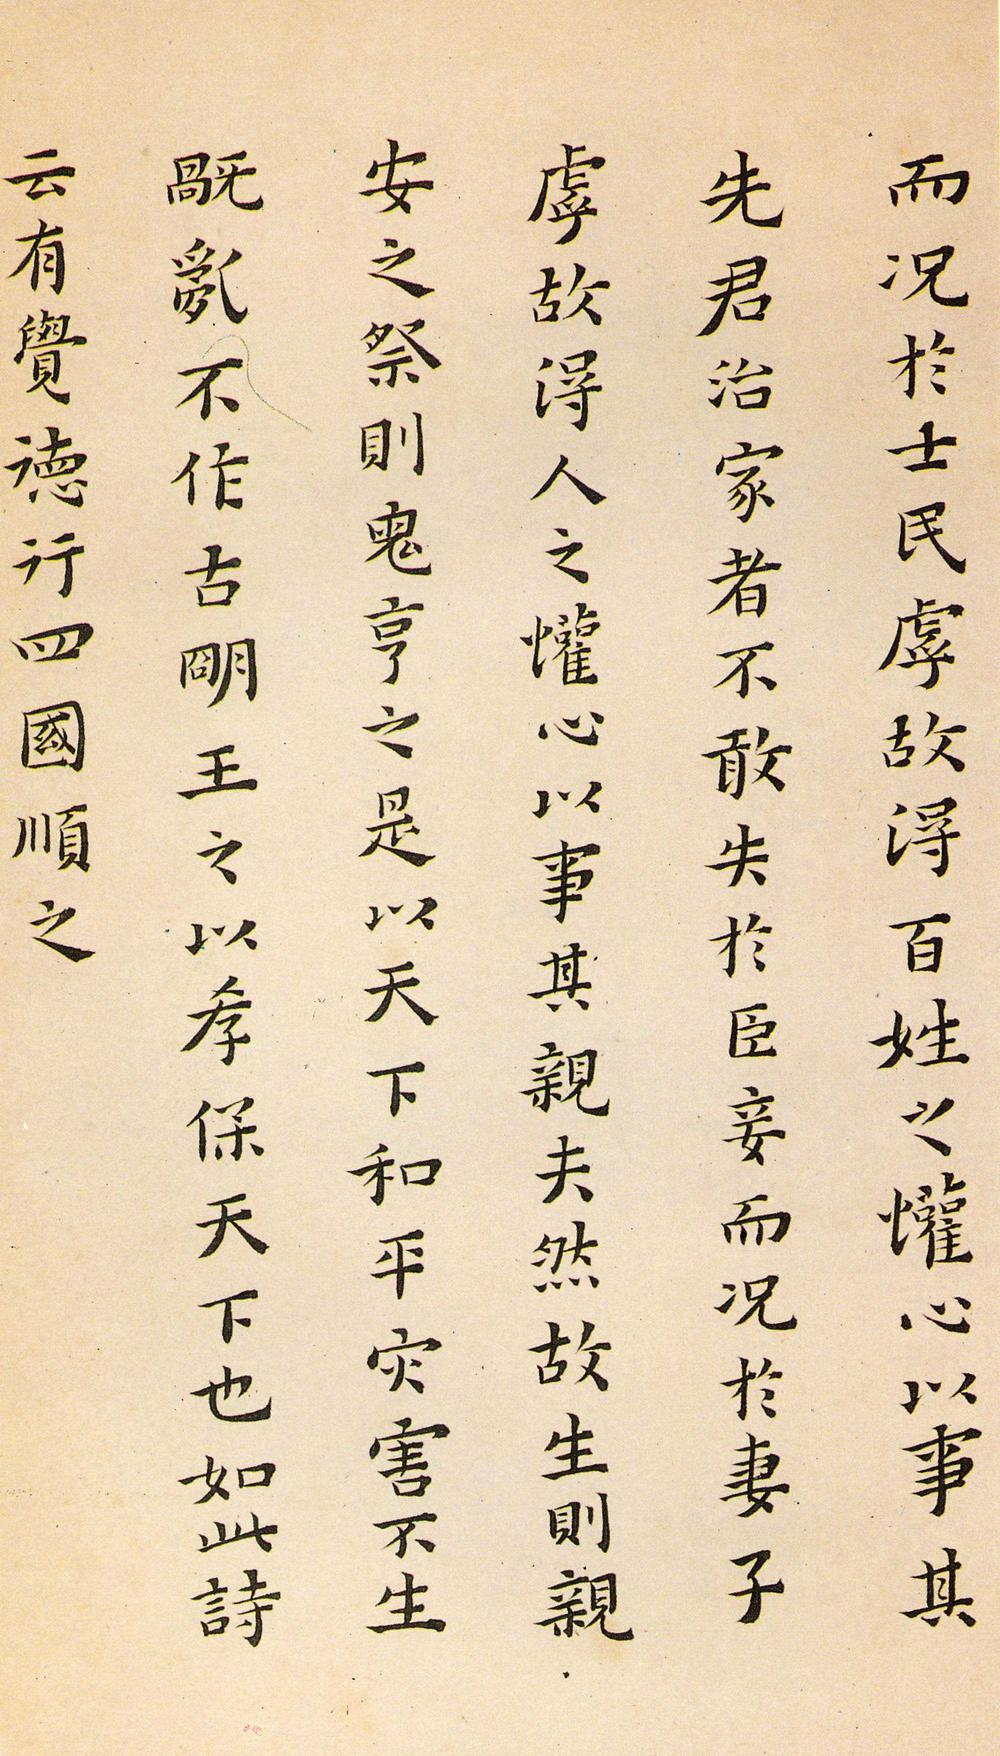 而况於士民虖故得百姓之懽心以事其
先君治家者不敢失於臣妾而况於妻子
虖故得人之懽心以事其親夫然故生則親
安之祭則鬼亨之是以天下和平灾害不生
䣛亂不作古明王之以孝保天下也如此詩
云有覺德行四國順之